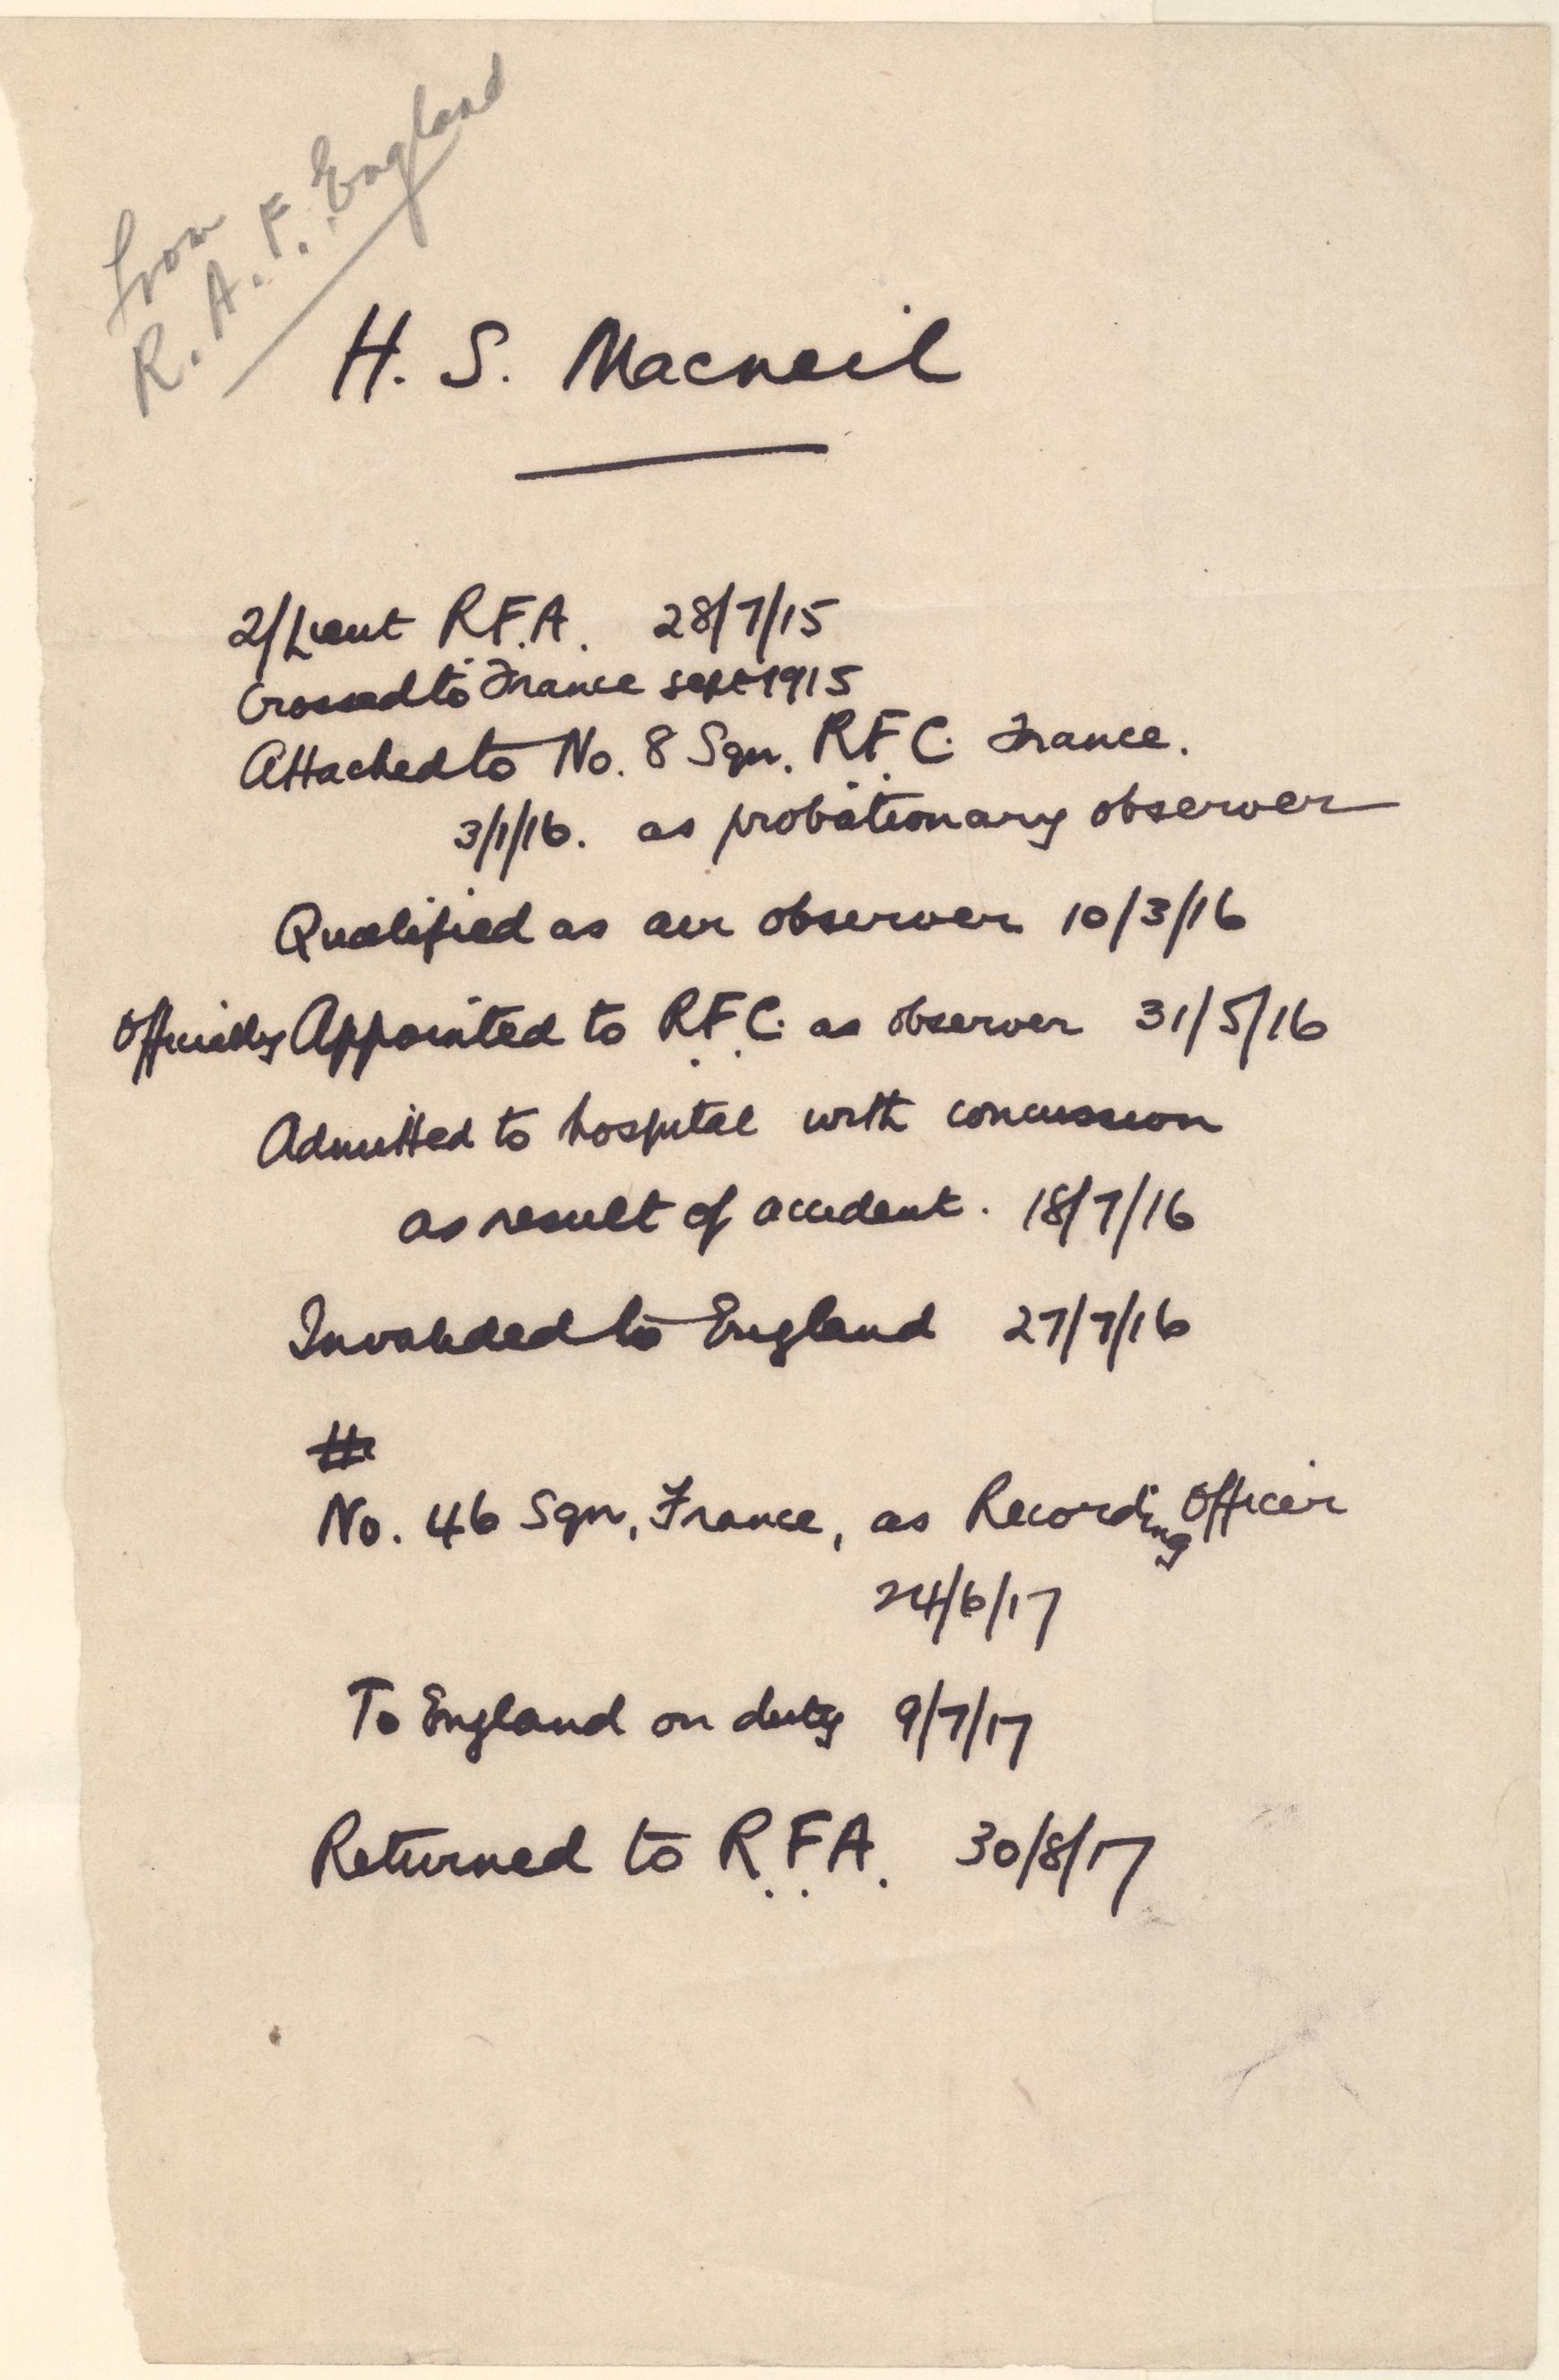 from
R. A. F. England
H. S. Macneil
2/Lieut R.F.A. 28/7/15
Crossed to France Sept 1915
Attached to No. 8 Sqn. R.F.C. France.
3/1/16. as probationary observer
Qualified as air observer 10/3/16
Officially Appointed to R.F.C. as observer 31/5/16
Admitted to hospital with concussion
as result of accident. 18/7/16
Invalided to England 27/7/16
No. 46 Sqn, France, as Recording Officer
24/6/17
To England on duty 9/7/17
Returned to R.F.A. 30/8/17